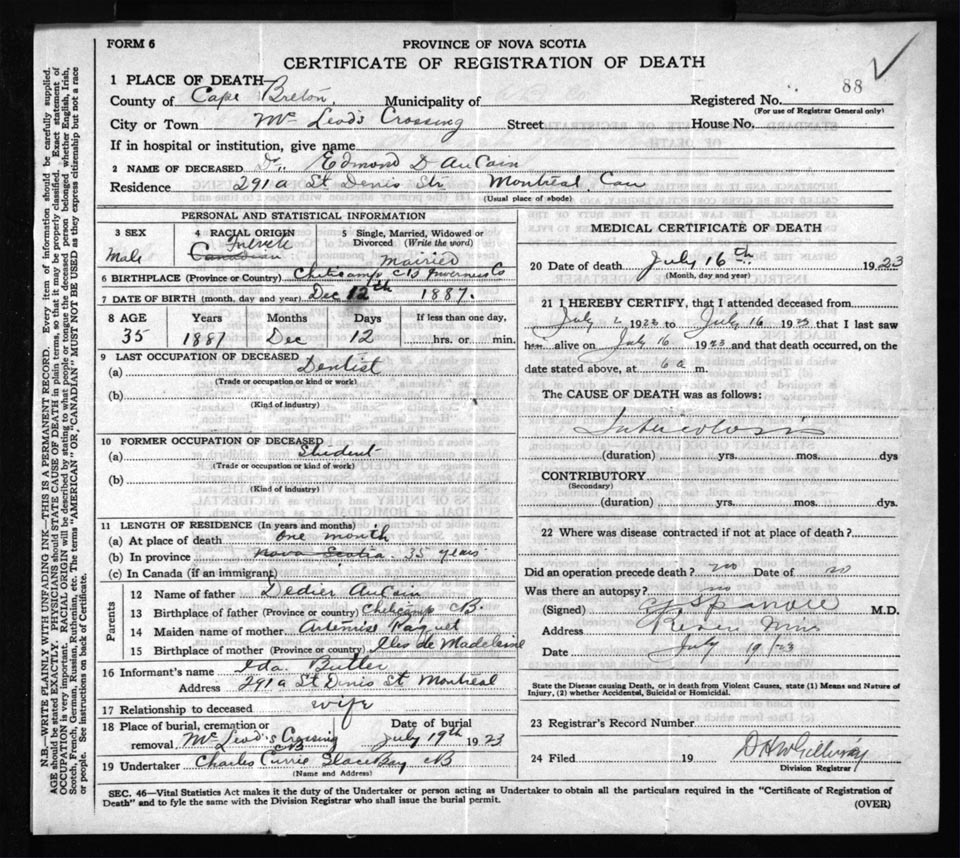 FORM 6
PROVINCE OF NOVA SCOTIA
CERTIFICATE OF REGISTRATION OF DEATH
88
1 PLACE OF DEATH
County of Cape Breton, Municipality of Registered No.
(For use of Registrar General only)
City or Town Mc Leods Crossing Street House No.
If in hospital or institution, give name
2 NAME OF DECEASED Dr. Edmond D AuCoin
Residence 291a St Denis Str Montreal, Can
(Usual place of abode)
PERSONAL AND STATISTICAL INFORMATION
3 SEX 4 RACIAL ORIGIN 5 Single, Married, Widowed or Divorced (Write the word)
Male French Canadian Married
6 BIRTHPLACE (Province or Country) Cheticamp CB Inverness Co
7 DATE OF BIRTH (month, day and year) Dec 12th 1887.
8 AGE Years Months Days If less than one day,
35 1887 Dec 12 hrs. or min.
9 LAST OCCUPATION OF DECEASED
(a) Dentist
(Trade or occupation or kind or work)
(b)
(Kind of industry)
10 FORMER OCCUPATION OF DECEASED
(a) Student
(Trade or occupation or kind of work)
(b)
(Kind of industry)
11 LENGTH OF RESIDENCE (In years and months)
(a) At place of death one month
(b) In province Nova Scotia. 35 years
(c) In Canada (if an immigrant)
Parents
12 Name of father Dedier AuCoin
13 Birthplace of father (Province or country) Cheticamp CB.
14 Maiden name of mother Artemise Paquet
15 Birthplace of mother (Province or country) Iles de Madeleine
16 Informant's name Eda. Butler
Address 291a St Denis St Montreal
17 Relationship to deceased wife
18 Place of burial, cremation or removal Mc Leod's Crossing CB Date of burial July 19th 1923
19 Undertaker Charles Currie Glace Bay CB
(Name and Address)
MEDICAL CERTIFICATE OF DEATH
20 Date of death July 16th 1923
(Month, day and year)
21 I HEREBY CERTIFY, that I attended deceased from
July 2 1923 to July 16 1923 that I last saw
him alive on July 16 1923 and that death occurred, on the
date stated above, at 6 a m.
The CAUSE OF DEATH was as follows:
Tuberculosis
(duration) yrs. mos. dys
CONTRIBUTORY
(Secondary)
(duration) yrs. mos. dys.
22 Where was disease contracted if not at place of death?
Did an operation precede death? no Date of no
Was there an autopsy? no
(Signed) M.D.
Address Mines
Date July 19/23
State the Disease causing Death, or in death from Violent Causes, state (1) Means and Nature of Injury, (2) whether Accidental, Suicidal or Homicidal.
23 Registrar's Record Number
24 Filed 19
Division Registrar
SEC. 46—Vital Statistics Act makes it the duty of the Undertaker or person acting as Undertaker to obtain all the particulars required in the "Certificate of Registration of
Death" and to fyle the same with the Division Registrar who shall issue the burial permit.
(OVER)
N.B.—WRITE PLAINLY WITH UNFADING INK—THIS IS A PERMANENT RECORD. Every item of information should be carefully supplied.
AGE should be stated EXACTLY. PHYSICIANS should STATE CAUSE OF DEATH in plain terms, so that it may be properly classified. Exact statement of
OCCUPATION is very important. RACIAL ORIGIN will be described by stating to what people or tongue the deceased person belonged whether English, Irish,
Scotch, French, German, Russian, Ruthenian, etc. The terms "AMERICAN" OR, "CANADIAN" MUST NOT BE USED as they express citizenship but not a race
or people. See instructions on back of Certificate.